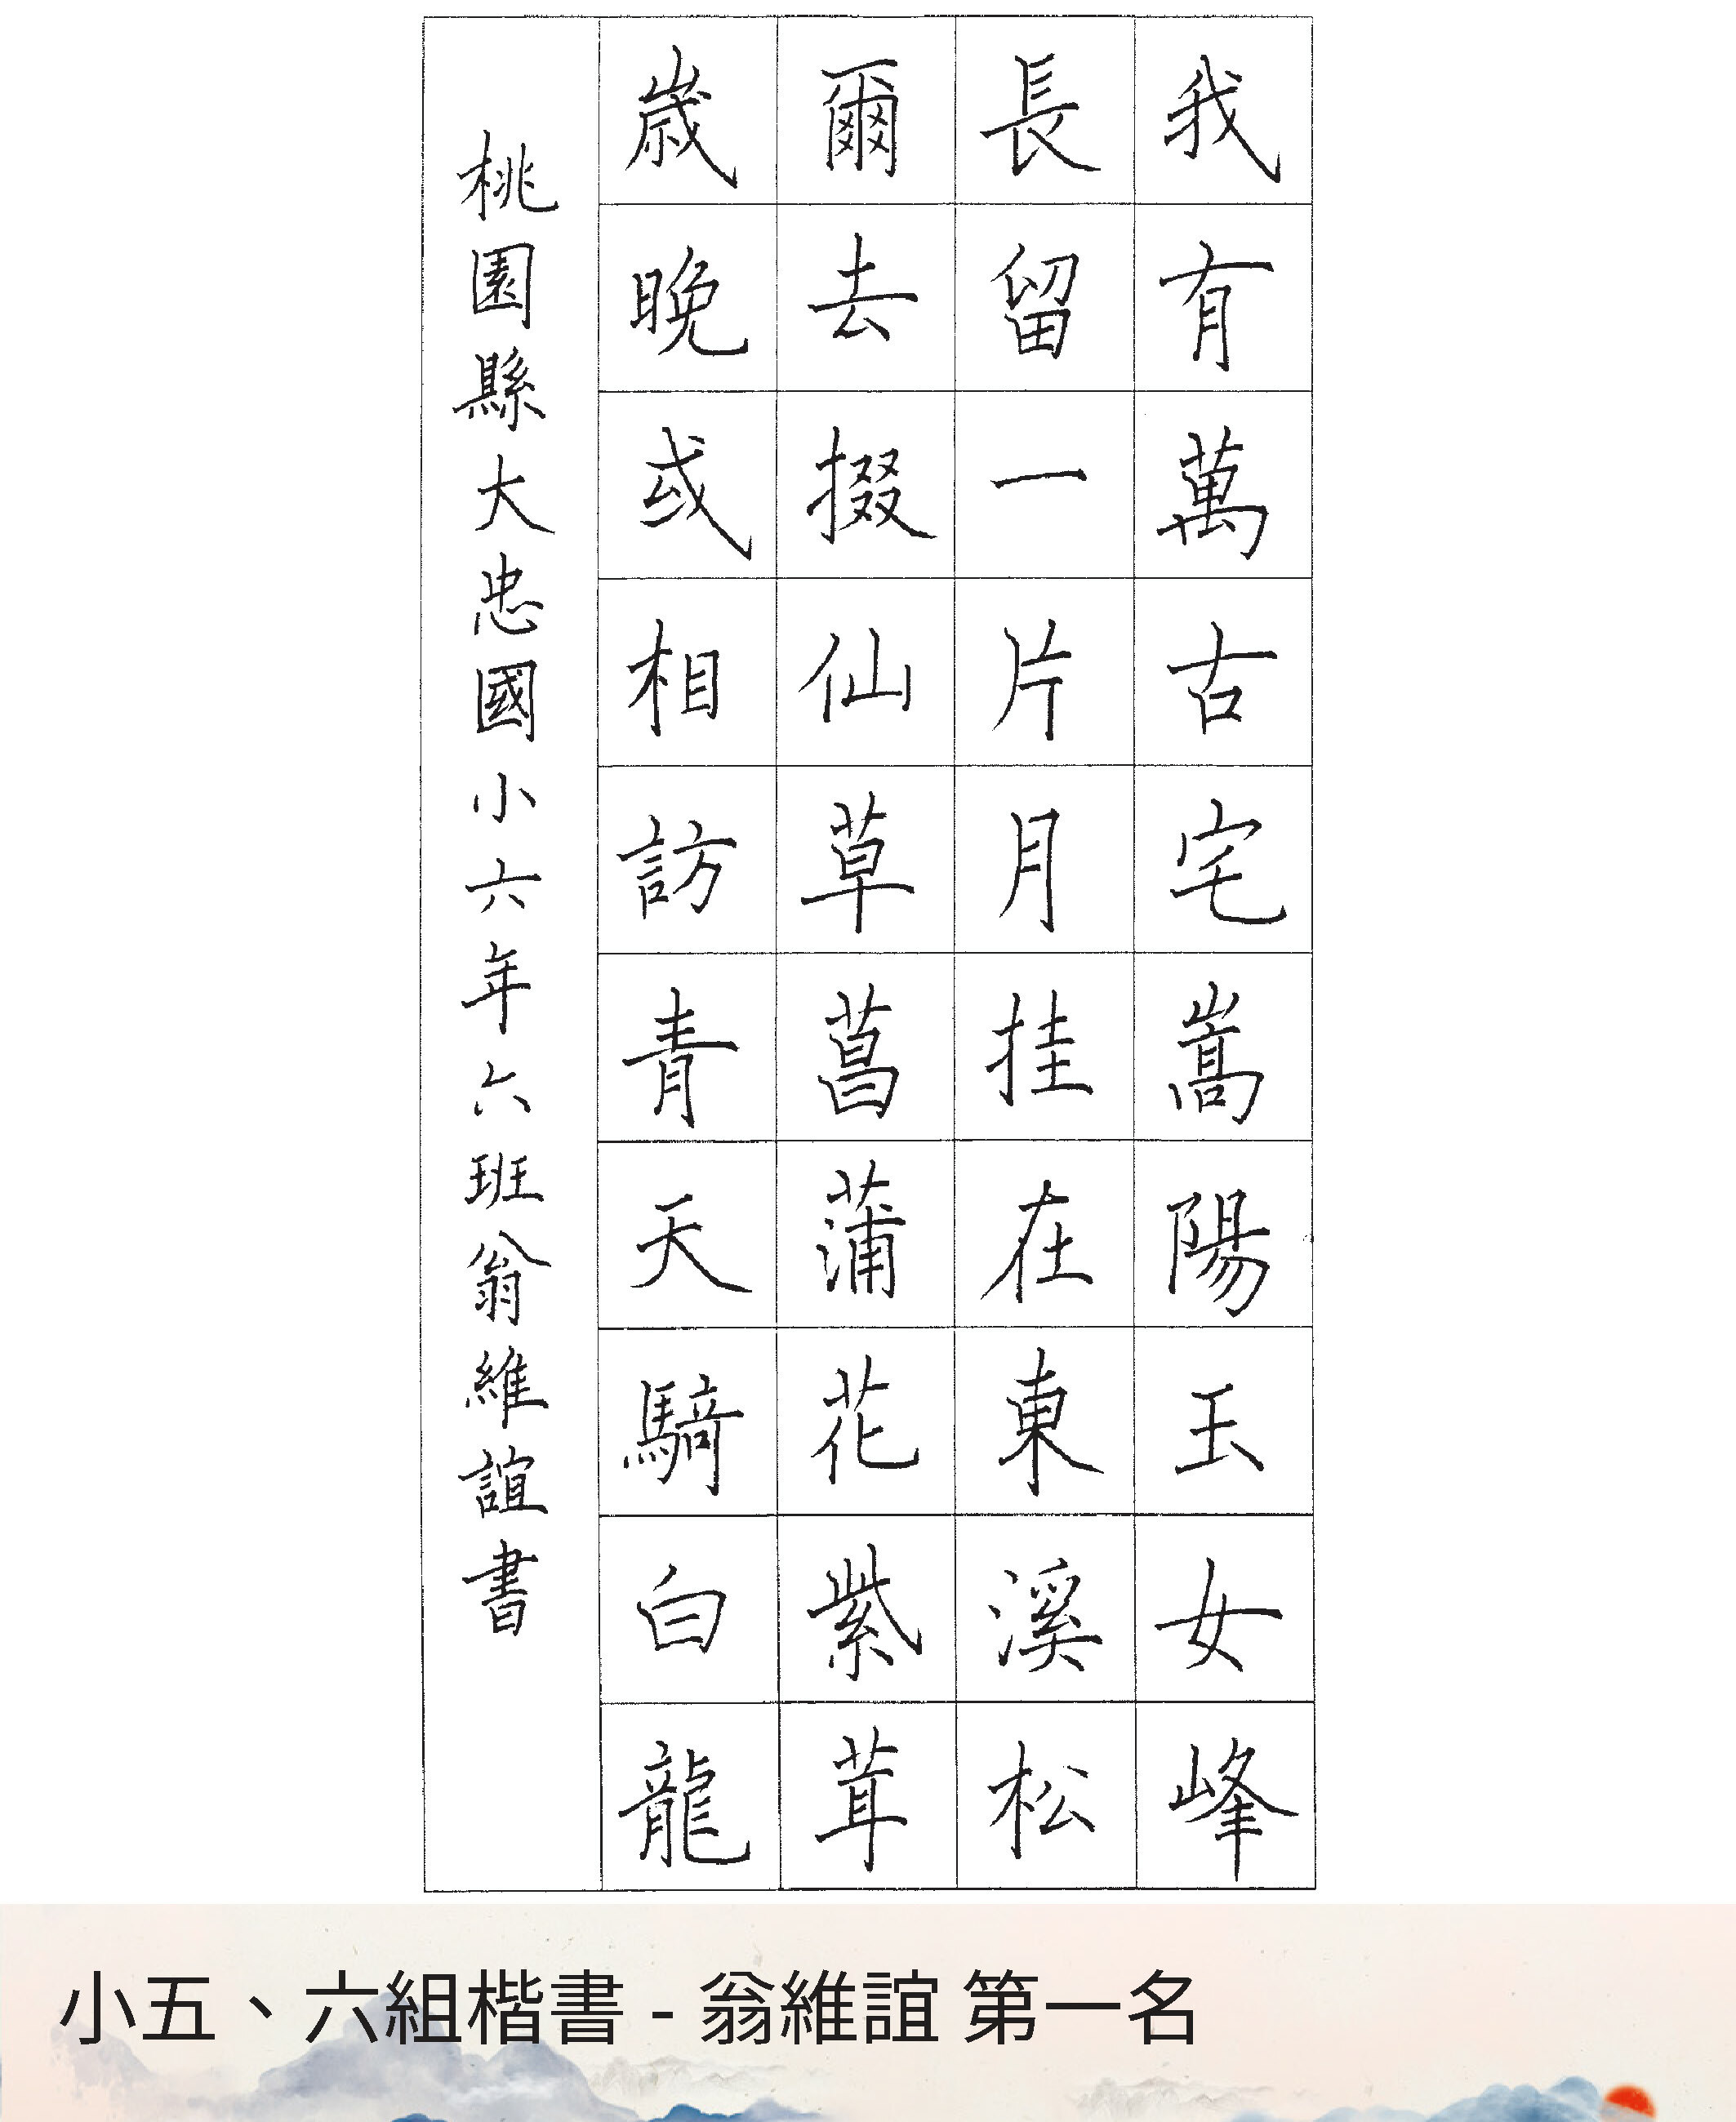 我有萬古宅嵩陽玉女峰
長留一片月挂在東溪松
爾去掇仙草菖蒲花紫茸
歲晚或相訪青天騎白龍
桃園縣大忠國小六年六班翁維誼書
小五、六組楷書 - 翁維誼 第一名